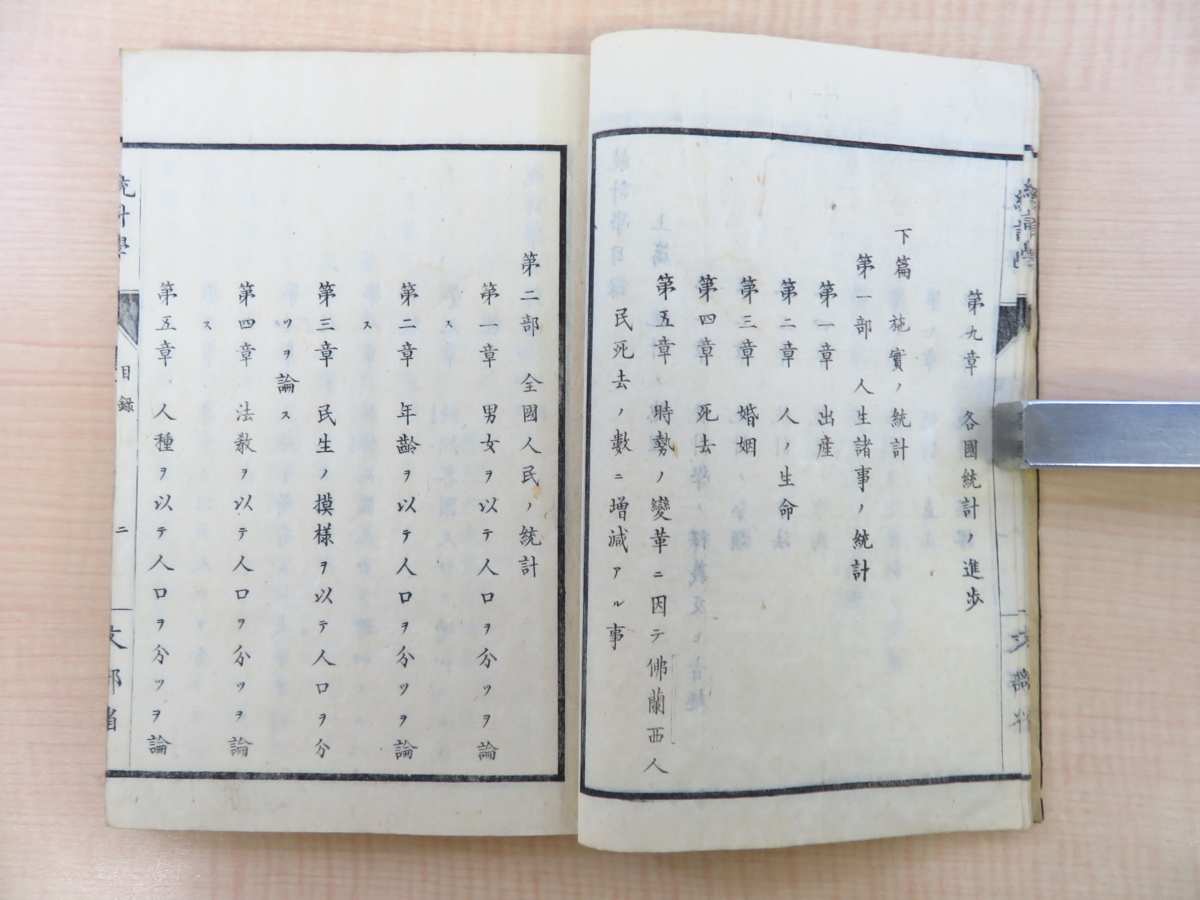 第九章 各國統計ノ進歩
下篇施實ノ統計
第一部 人生諸事ノ統計
第一章 出産
第二章 人ノ生命
第三章 婚姻
第四章 死去
第五章 時勢ノ變革ニ因テ佛蘭西人
民死去ノ數ニ増減アル事
第二部 全國人民ノ統計
第一章 男女ヲ以テ人口ヲ分ツヲ論
ス
第二章 年齢ヲ以テ人口ヲ分ツヲ論
ス
第三章 民生ノ摸様ヲ以テ人口ヲ分
ツヲ論ス
第四章 法教ヲ以テ人口ヲ分ツヲ論
ス
第五章 人種ヲ以テ人口ヲ分ツヲ論
統計學
目録
二
文部省